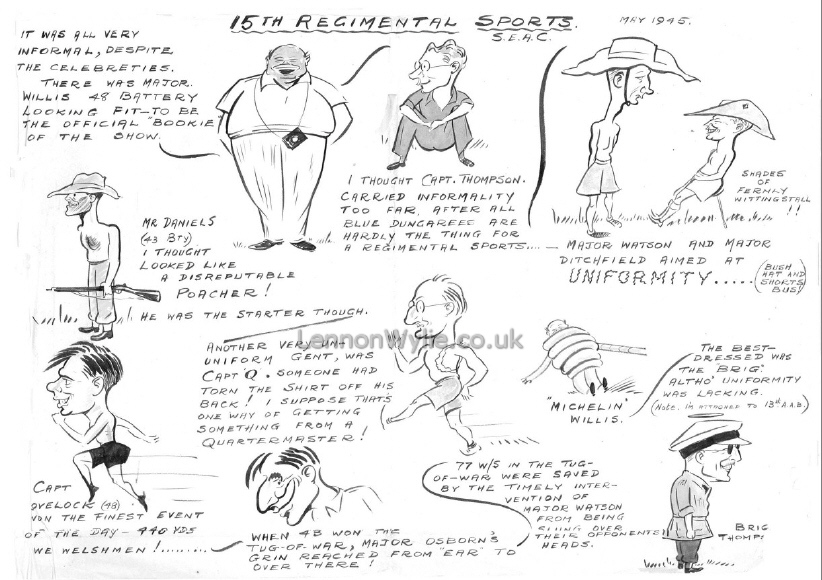 15TH REGIMENTAL SPORTS.
S.E.A.C.
MAY 1945.
IT WAS ALL VERY
INFORMAL, DESPITE
THE CELEBRETIES.
THERE WAS MAJOR.
WILLIS 48 BATTERY
LOOKING FIT—TO BE
THE OFFICIAL "BOOKIE"
OF THE SHOW.
I THOUGHT CAPT. THOMPSON.
CARRIED INFORMALITY
TOO FAR, AFTER ALL
BLUE DUNGAREES ARE
HARDLY THE THING FOR
A REGIMENTAL SPORTS....
SHADES
OF
FERNLY
WITTINGSTALL
!!
— MAJOR WATSON AND MAJOR
DITCHFIELD AIMED AT
UNIFORMITY.....
(BUSH
HAT AND
SHORTS
BUS)
MR DANIELS
(43 BTY)
I THOUGHT
LOOKED LIKE
A DISREPUTABLE
POACHER!
HE WAS THE STARTER THOUGH.
ANOTHER VERY UN-
UNIFORM GENT, WAS
CAPT 'Q'. SOMEONE HAD
TORN THE SHIRT OFF HIS
BACK! I SUPPOSE THAT'S
ONE WAY OF GETTING
SOMETHING FROM A
QUARTERMASTER!
LennonWylie.co.uk
"MICHELIN"
WILLIS.
THE BEST-
DRESSED WAS
THE BRIG:
ALTHO' UNIFORMITY
WAS LACKING.
(Note. I'm ATTACHED TO 13th A.A.B.)
CAPT
OVELOCK (48)
WON THE FINEST EVENT
OF THE DAY — 440 YDS
WE WELSHMEN!.........
WHEN 48 WON THE
TUG-OF-WAR, MAJOR OSBORN'S
GRIN REACHED FROM "EAR" TO
OVER THERE!
77 W/S IN THE TUG-
OF-WAR WERE SAVED
BY THE TIMELY INTER-
VENTION OF
MAJOR WATSON
FROM BEING
SLUNG OVER
THEIR OPPONENTS
HEADS.
BRIG
THOMPS